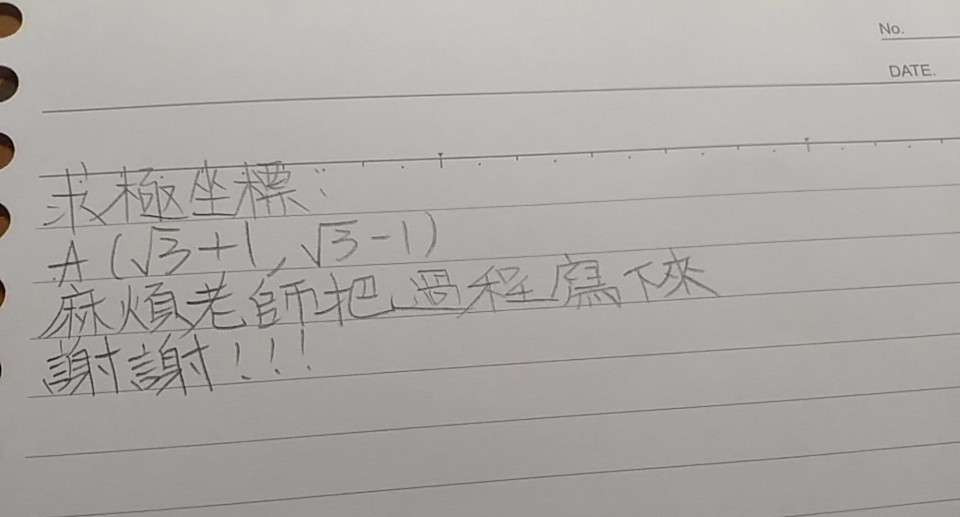 No.
DATE.
求極坐標:
A(√3+1, √3-1)
麻煩老師把過程寫下來
謝謝!!!